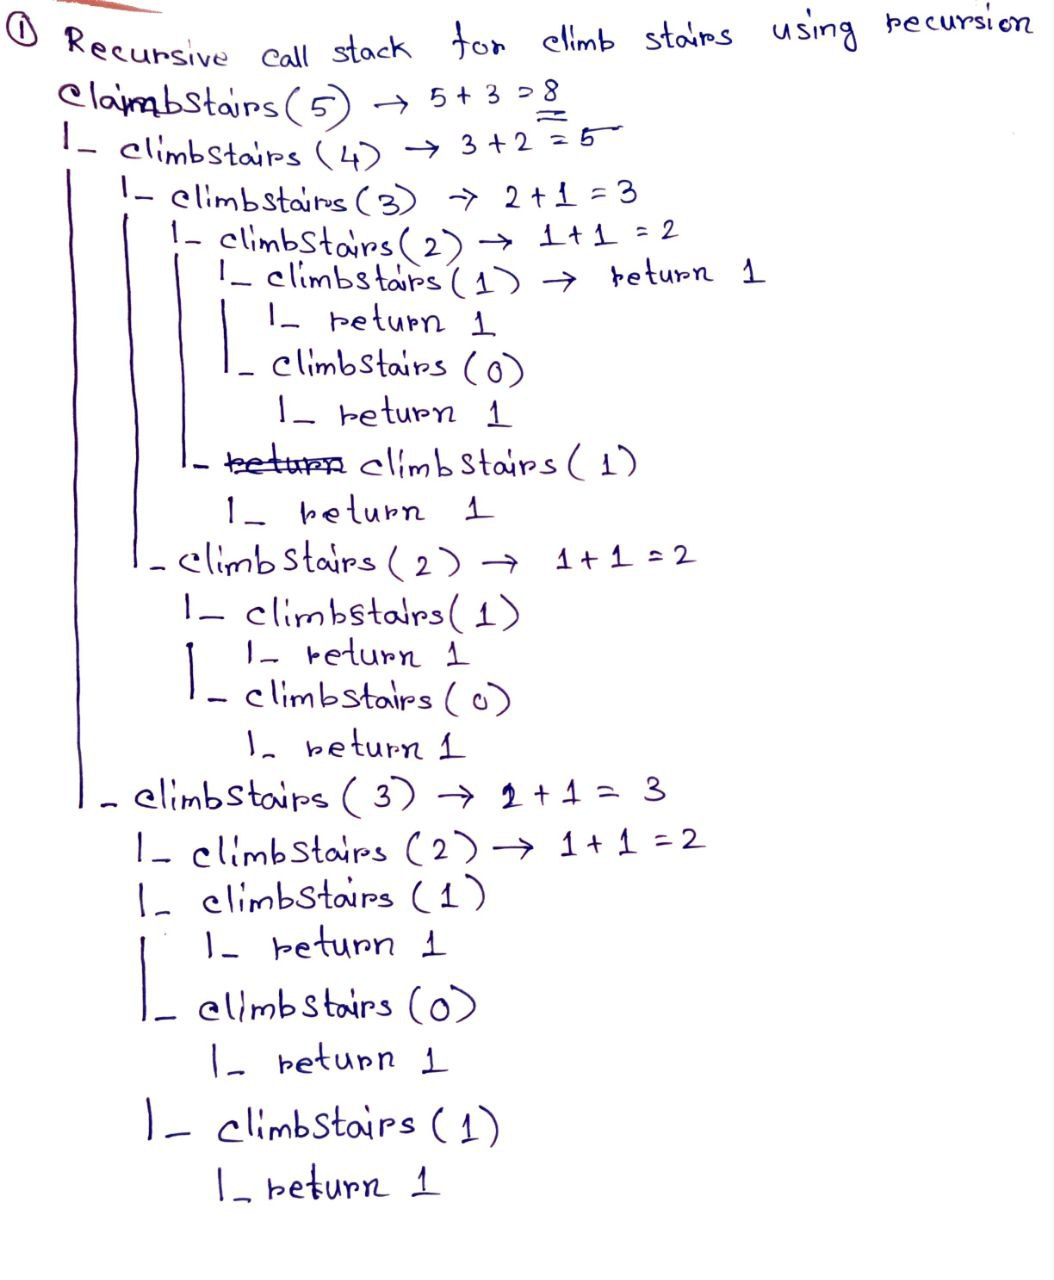 ① Recursive call stack for climb stairs using recursion
ClaimbStairs(5) → 5 + 3 = 8
|_ climbstairs (4) → 3 + 2 = 5
|_ climbstairs (3) → 2 + 1 = 3
|_ climbStairs (2) → 1 + 1 = 2
|_ climbstairs (1) → return 1
|_ return 1
|_ climbstairs (0)
|_ return 1
|_ return climbstairs (1)
|_ return 1
|_ climbstairs (2) → 1 + 1 = 2
|_ climbstairs (1)
|_ return 1
|_ climbstairs (0)
|_ return 1
|_ climbstairs (3) → 2 + 1 = 3
|_ climbstairs (2) → 1 + 1 = 2
|_ climbStairs (1)
|_ return 1
|_ climbstairs (0)
|_ return 1
|_ climbStairs (1)
|_ return 1